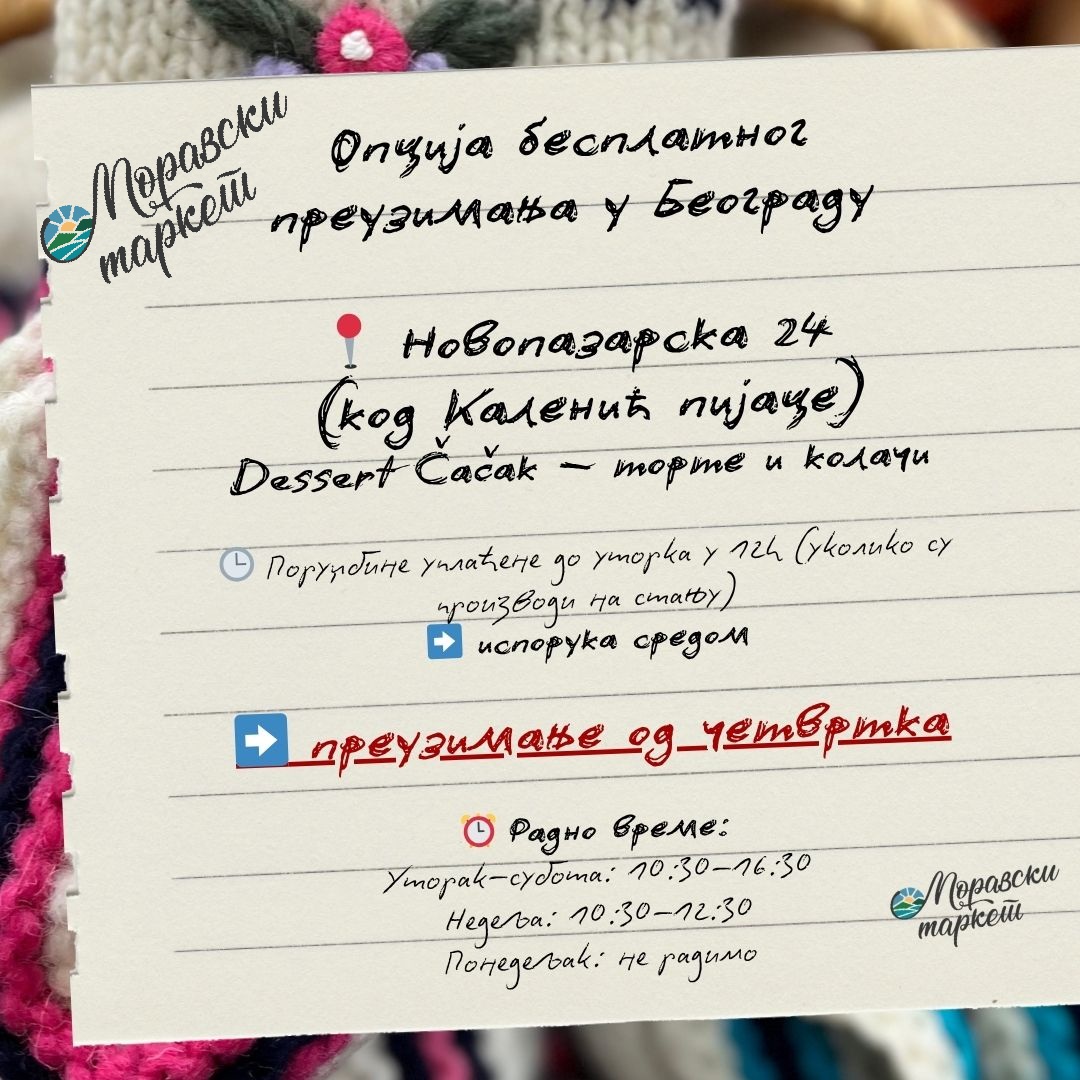 Моравски
маркет
Опција бесплатног
преузимања у Београду
📍 Новопазарска 24
(код Каленић пијаце)
Dessert Čačak – торте и колачи
🕒 Поруџбине уплаћене до уторка у 12h (уколико су
производи на стању)
➡️ испорука средом
➡️ преузимање од четвртка
⏰ Радно време:
Уторак–субота: 10:30–16:30
Недеља: 10:30–12:30
Понедељак: не радимо
Моравски
маркет